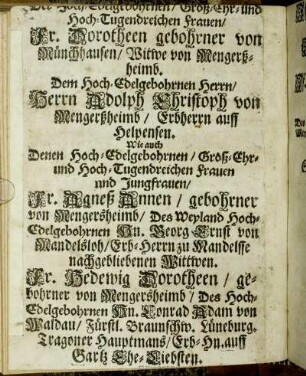 Der Hoch-Edelgebohrnen/ Groß-Ehr- und
Hoch-Tugendreichen Frauen/
Fr. Dorotheen gebohrner von
Münchhausen/ Witwe von Mengerß-
heimb.
Dem Hoch-Edelgebohrnen Herrn/
Herrn Adolph Christoph von
Mengerßheimb/ Erbherrn auff
Helpensen.
Wie auch
Denen Hoch-Edelgebohrnen/ Groß-Ehr-
und Hoch-Tugendreichen Frauen
und Jungfrauen/
Fr. Agneß Annen/ gebohrner
von Mengersheimb/ Des Weyland Hoch-
Edelgebohrnen Hn. Georg Ernst von
Mandelsloh/ Erb-Herrn zu Mandelsse
nachgebliebenen Wittwen.
Fr. Hedewig Dorotheen/ ge-
bohrner von Mengersheimb/ Des Hoch-
Edelgebohrnen Hn. Conrad Adam von
Maldau/ Fürstl. Braunschw. Lüneburg.
Tragoner Hauptmans/ Erb-Hn. auff
Gartz Ehe-Liebsten.